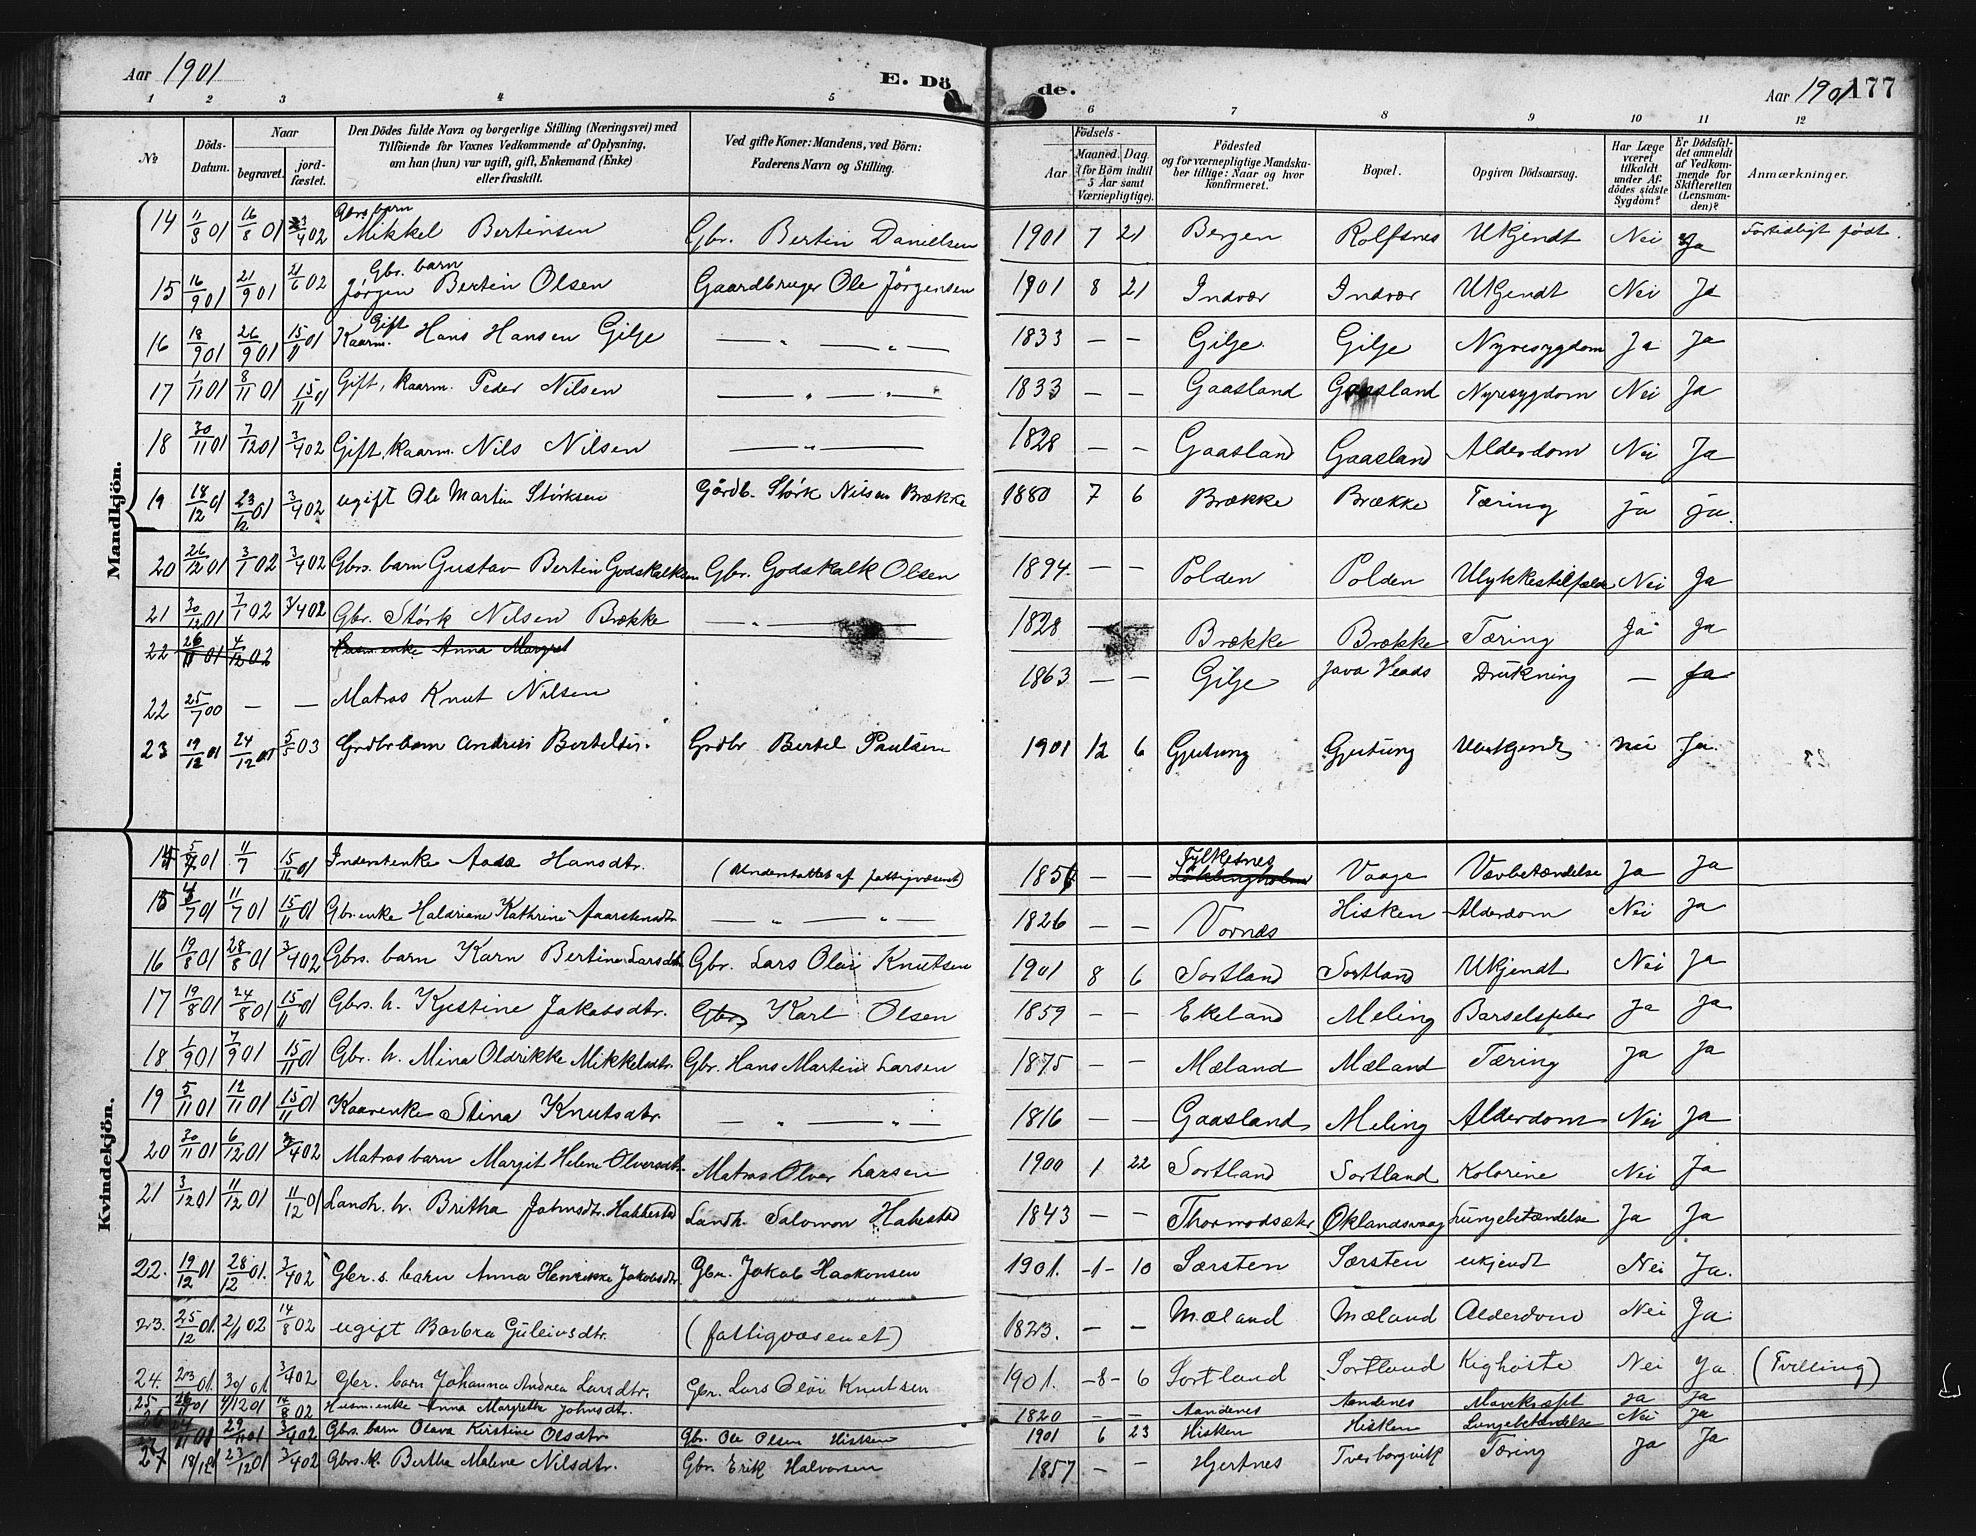 Aar 1901 E. Dö de. Aar 1901 177
1 2 3 4 5 6 7 8 9 10 11 12
No Döds-Datum. Naar begravet. jord-fæstet. Den Dödes fulde Navn og borgerlige Stilling (Næringsvei) med Tilföiende for Voxnes Vedkommende af Oplysning, om han (hun) var ugift, gift, Enkemand (Enke) eller fraskilt. Ved gifte Koner: Mandens, ved Börn: Faderens Navn og Stilling. Födsels- Aar Maaned. Dag (for Börn indtil 5 Aar samt Værnepligtige). Födested og for værnepligtige Mandska-ber tillige: Naar og hvor konfirmeret. Bopæl. Opgiven Dödsaarsag. Har Læge været tilkaldt under Af-dödes sidste Sygdom? Er Dödsfal-det anmeldt af Vedkom-mende for Skifteretten (Lensman-den)? Anmærkninger.
Mandkjön.
14 11/8 01 16/8 01 3/4 02 Gbrs barn Mikkel Bertinsen Gbr. Bertin Danielsen 1901 7 21 Bergen Rolfsnes Ukjendt Nei Ja Fortidligt født.
15 16/9 01 21/9 01 21/6 02 Gbr. barn Jørgen Bertin Olsen Gaardbruger Ole Jørgensen 1901 8 21 Indvær Indvær Ukjendt Nei Ja
16 18/9 01 26/9 01 15/11 01 Gift Kaarm. Hans Hansen Gilje — " — " — 1833 — — Gilje Gilje Nyresygdom Ja Ja
17 1/11 01 8/11 01 15/11 01 Gift, kaarm. Peder Nilsen — " — " — " 1833 — — Gaasland Gaasland Nyresygdom Nei Ja
18 30/11 01 7/12 01 3/4 02 Gift, kaarm. Nils Nilsen — " — 1828 — — Gaasland Gaasland Alderdom Nei Ja
19 18/12 01 23/12 01 3/4 02 ugift Ole Martin Størksen Gårdb. Størk Nilsen Brække 1880 7 6 Brække Brække Tæring ja ja.
20 26/12 01 3/1 02 3/4 02 Gbrs. barn Gustav Bertin Godskalksen Gbr. Godskalk Olsen 1894 — — Polden Polden Ulykkestilfælde Nei Ja
21 30/12 01 7/1 02 3/4 02 Gbr. Størk Nilsen Brække — " — 1828 — — Brække Brække Tæring Ja Ja
22 26/11 01 4/12 02 Husm.enke Anna Margret
22 25/7 00 — — Matros Knut Nilsen 1863 — — Gilje Java Heads Drukning — Ja
23 19/12 01 24/12 01 5/5 03 Grdbr barn Andreas Bertelsen. Grdbr. Bertel Paulsen 1901 12 6 Gjutung Gjutung Ukjendt Nei Ja.
Kvindekjön.
14 5/7 01 11/7 15/11 01 Inderstenke Aasa Hansdtr. (Understøttet af fattigvæsent) 1856 — — Fylkesnes Vaage Vævbetændelse Ja Ja
15 4/7 01 11/7 01 15/11 01 Gbr enke Haldriane Kathrine Aarstensdtr — " — " — 1826 — — Vornes Hisken Alderdom Nei Ja
16 19/8 01 28/8 01 3/4 02 Gbrs. barn Karn Bertine Larsdtr. Gbr. Lars Olai Knutsen 1901 8 6 Sortland Sortland Ukjendt Nei Ja
17 19/8 01 24/8 01 15/11 01 Gbrs. h. Kjestine Jakobsdtr. Gbr. Karl Olsen 1859 — — Ekeland Meling Barselfeber Ja Ja
18 1/9 01 7/9 01 15/11 01 Gbr. h. Mina Oldrikke Mikkelsdtr. Gbr. Hans Martin Larsen 1875 — — Mæland Mæland Tæring Ja Ja
19 5/11 01 12/11 01 15/11 01 Kaarenke Stina Knutsdtr — " — " — 1816 — — Gaasland Meling Alderdom Nei Ja
20 30/11 01 6/12 01 3/4 02 Matros barn Margit Helene Olversdtr. Matros Olver Larsen 1900 1 22 Sortland Sortland Kolerine Nei Ja
21 3/12 01 11/12 01 11/12 01 Landh. h. Britha Johnsdtr. Hakkestad Landh. Salomon Hakestad 1843 — — Thormodsæter Øklandsvaag Lungebetændelse Ja Ja
22. 19/12 01 28/12 01. 3/4 02 Gbr.s. barn Anna Henrikke Jakobsdtr. Gbr. Jakob Haakonsen 1901. -1- 10 Særsten Særsten ukjendt Nei Ja.
23. 25/12 01. 2/1 02 14/8 02 ugift Barbra Guleivsdtr. (fattigvæsenet) 1823. — — Mæland Mæland Alderdom Nei Ja
24. 23/ 01. 30/ 01 3/4 02 Gbr. barn Johanna Andrea Larsdtr. Gbr. Lars Olai Knutsen 1901. -8- 6 Sortland Sortland Kighoste Nei Ja (Tvilling)
25 26/11 01 4/12 01 14/8 02 Husm.enke Anna Margrethe Johnsdtr. 1820 — — Aandenes Aandenes Mavekræft Ja Ja
26 /11 01 29/11 01 3/4 02 Gbrs. barn Olava Kirstine Olsdtr Gbr. Ole Olsen Hisken 1901 6 23 Hisken Hisken Lungebetændelse Nei Ja
27 18/12 23/12 01 3/4 02 Gbrs. k. Bertha Malene Nilsdtr. Gbr. Erik Halvorsen 1857 — — Hjertnes Tverborgvik Tæring Ja Ja